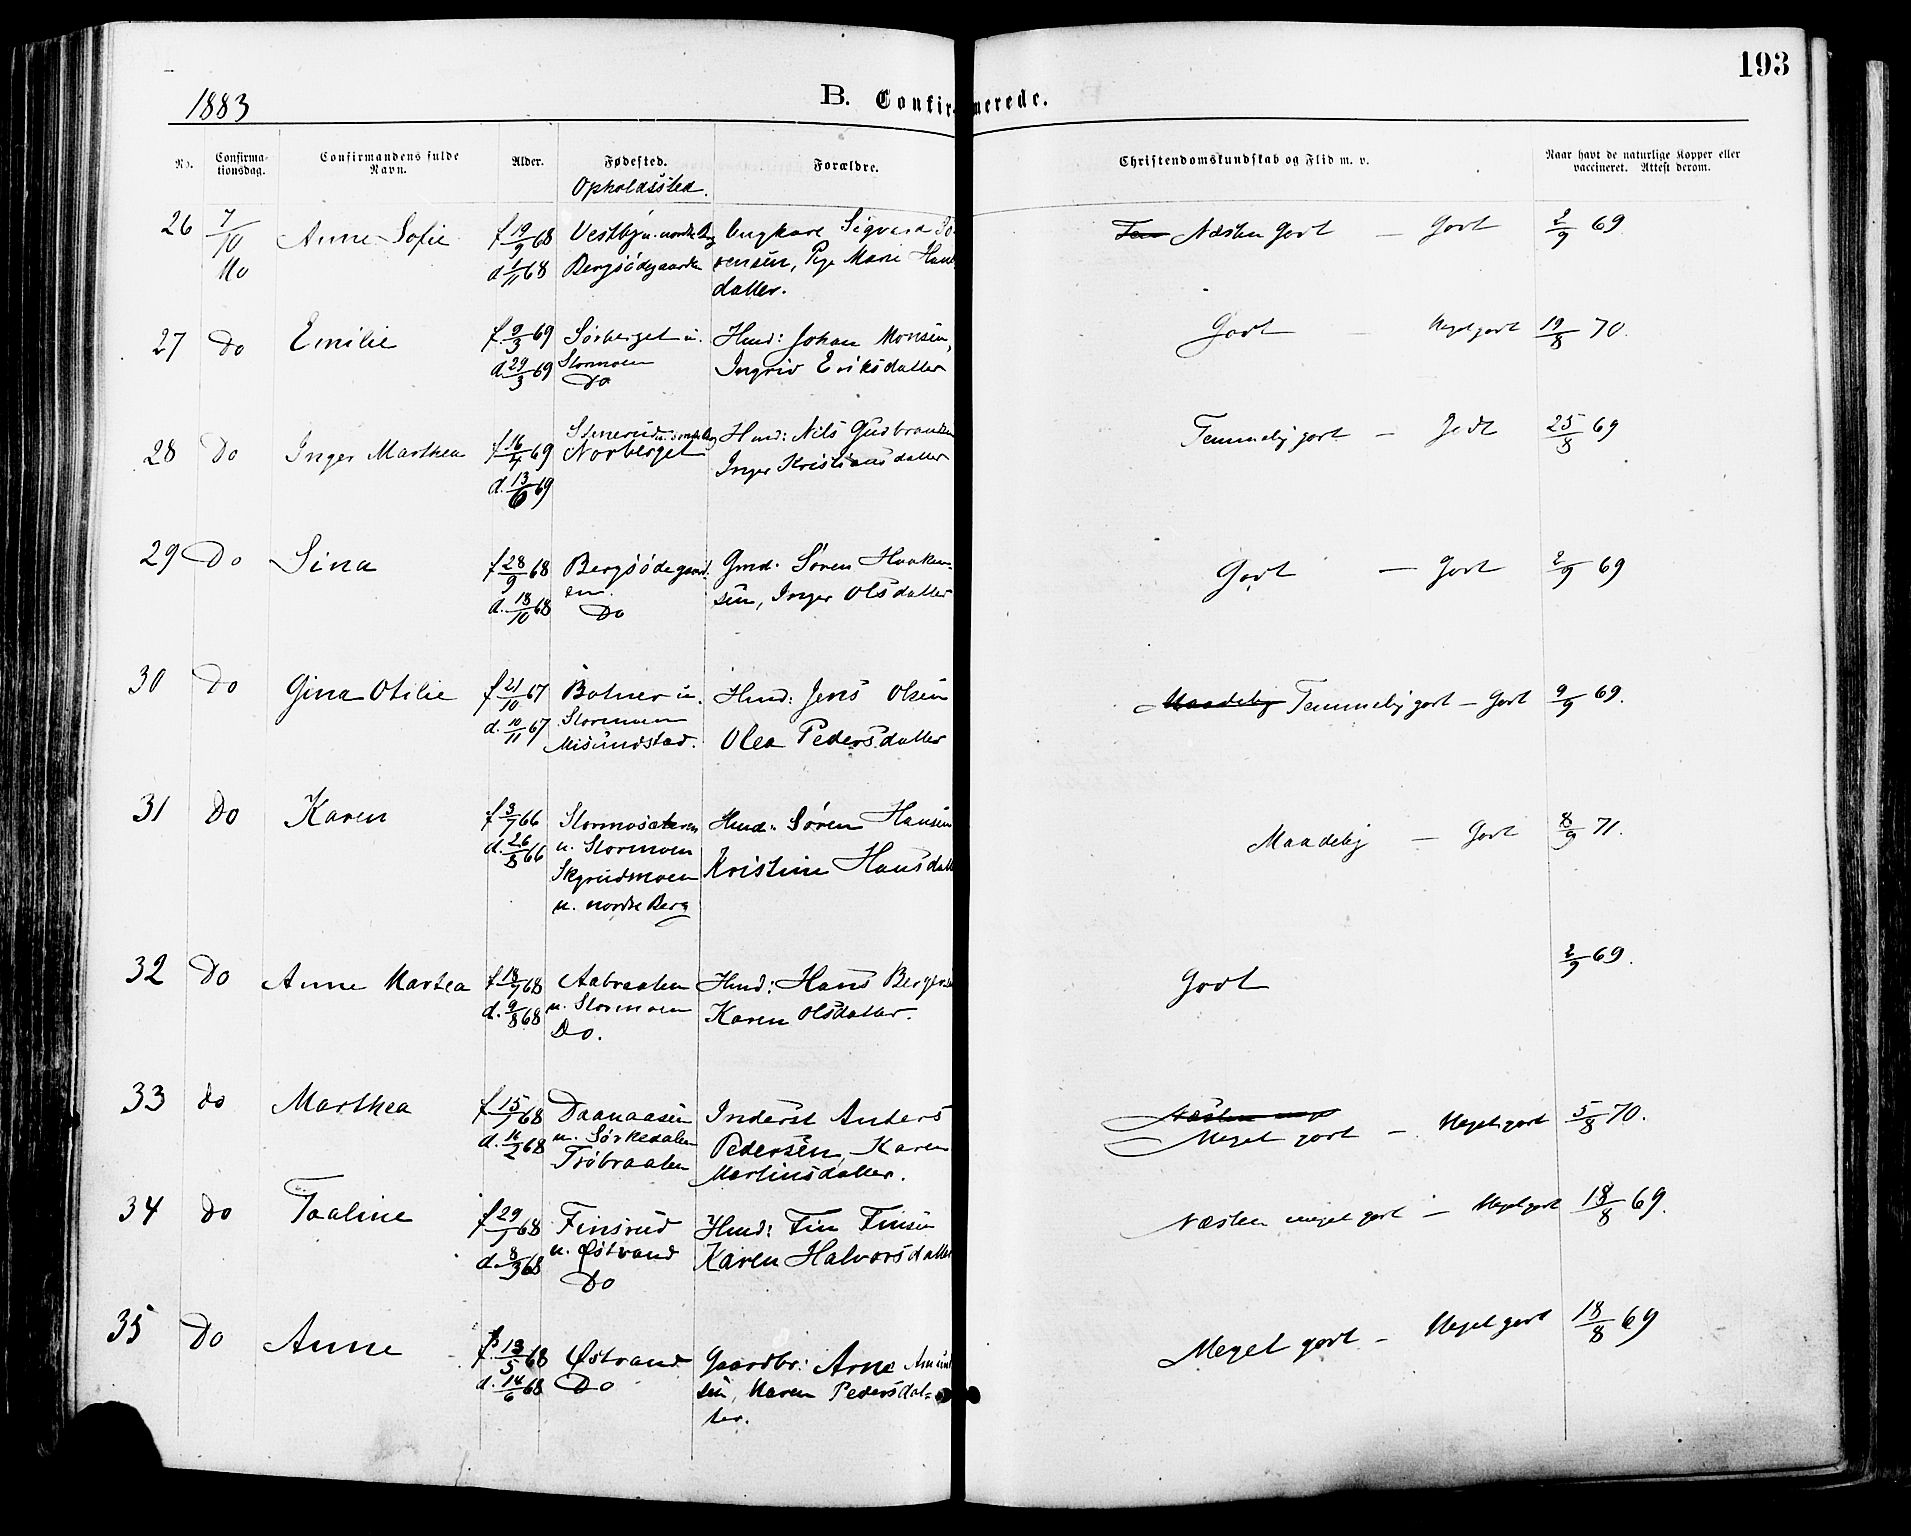 193
1883
B. Confirmerede.
No.
Confirma-
tionsdag.
Confirmandens fulde
Navn.
Alder.
Fødested.
Opholdssted.
Forældre.
Christendomskundskab og Flid m. v.
Naar havt de naturlige Kopper eller
vaccineret. Attest derom.
26 7/10 Anne Sofie f 19/9 68 Vestby u. nordre Berg Ungkarl Sigvard Næsten Godt – Godt 2/9 69
Mo d 1/11 68 Bergsødegaarden Pige Marie Hans
datter.
27 Do Emilie f. 9/3 69 Sørberget u. Hmd: Johan Monsen, Godt – Meget godt 19/8 70.
d. 29/3 69 Stormoen Ingrid Eriksdatter
Do
28 Do Inger Marthea f. 16/4 69 Hmd: Nils Gudbrandsen Temmelig godt – Godt 25/8 69
d. 13/6 69 Norberget Inger Kristiansdatter
29 Do Sina f 28/9 68 Bergsødegaard- Gmd. Søren Haaken- Godt – Godt 2/9 69
d. 18/10 68 en. sen, Inger Olsdatter
Do
30 Do Gina Otilie f 21/10 67 Botner u. Hmd: Jens Olsen Maadelig Temmelig godt – Godt 9/9 69.
d. 10/11 67 Stormoen Olea Pedersdatter
Misundstad.
31 Do Karen f 3/7 66 Stormosæteren Hmd: Søren Hansen Maadelig – Godt 8/9 71.
d. 26/8 66 u. Stormoen Kristine Hansdatt
Skyrudmoen
u. nordre Berg
32 Do Anne Martea f. 18/7 68 Aabraaten Hmd: Hans Bergersen Godt 2/9 69.
d. 9/8 68 u. Stormoen Karen Olsdatter.
Do.
33 do Marthea f 15/1 68 Daanaasen Inderst Anders Næsten meget
d. 16/2 68 u. Sørkedalen Pedersen, Karen Meget godt – Meget godt 5/8 70.
Trøbraaten Martinsdatter.
34 Do Taaline f 29/1 68 Finsrud Hmd: Fin Finsen Næsten meget godt – Meget godt 18/8 69.
d. 8/3 68 u. Østrand Karen Halvorsdatter
Do
35 Do Anne f 13/5 68 Østrand Gaardbr: Arne Amund Meget godt – Meget godt 18/8 69
d. 14/6 68 Do sen, Maren Pedersdat-
ter.